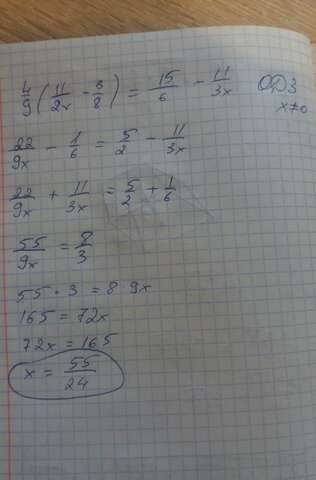 4/9 (11/2x - 3/8) = 15/6 - 11/3x ОДЗ
x≠0
22/9x - 1/6 = 5/2 - 11/3x
22/9x + 11/3x = 5/2 + 1/6
55/9x = 8/3
55 · 3 = 8 9x
165 = 72x
72x = 165
x = 55/24